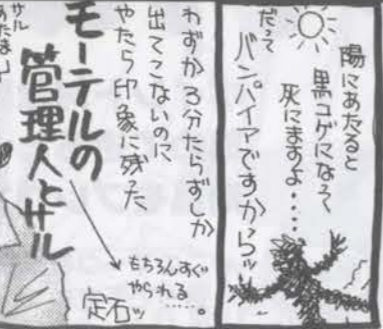 陽にあたると
黒コゲになって
死にますよ・・・・
だって
バンパイアですからッ
わずか3分たらずしか
出てこないのに
やたら印象に残った
モーテルの
管理人とサル
サル
あたま
もちろんすぐ
やられる
……。
定石ッ